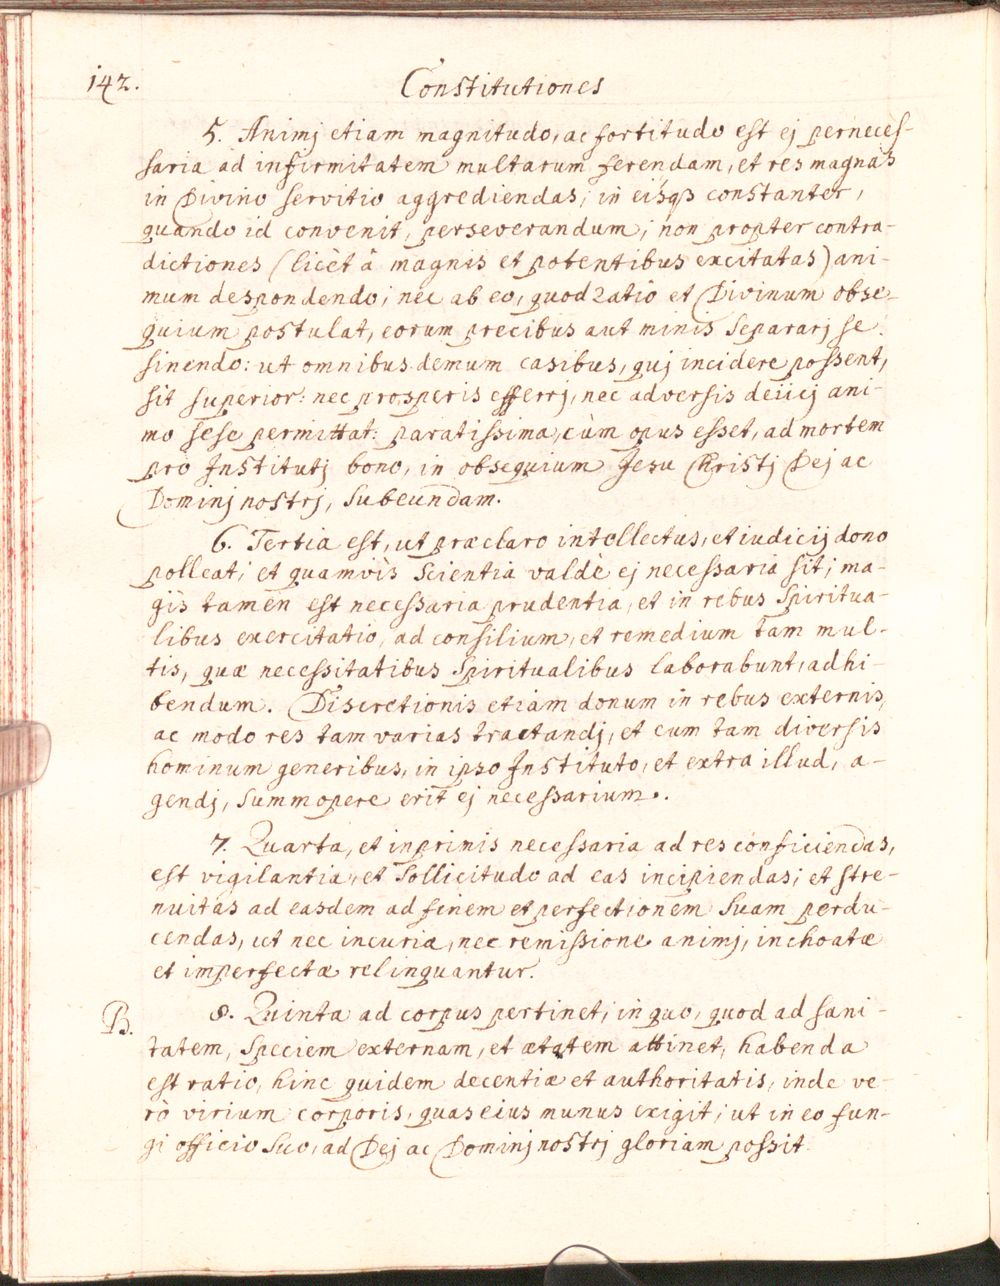 142.
Constitutiones
5. Animj etiam magnitudo, ac fortitudo est ej perneces-
saria ad infirmitatem multarum ferendam, et res magnas
in Divino servitio aggrediendas; in eisqȝ constanter,
quando id convenit, perseverandum; non propter contra-
dictiones (licèt à magnis et potentibus excitatas) ani-
mum despondendo; nec ab eo, quod Ratio et Divinum obse-
quium postulat, eorum precibus aut minis separarj se
sinendo: ut omnibus demum casibus, quj incidere possent,
sit superior: nec prosperis efferrj, nec adversis deiicj ani-
mo sese permittat: paratissima, cùm opus esset, ad mortem
pro Institutj bono, in obsequium Jesu Christj Dej ac
Dominj nostrj, subeundam.
6. Tertia est, ut præclaro intellectus, et iudicij dono
polleat; et quamvìs scientia valdè ej necessaria sit; ma-
gis tamen est necessaria prudentia, et in rebus spiritua-
libus exercitatio, ad consilium, et remedium tam mul-
tis, quæ necessitatibus spiritualibus laborabunt, adhi-
bendum. Discretionis etiam donum in rebus externis,
ac modo res tam varias tractandj, et cum tam diversis
hominum generibus, in ipso Instituto, et extra illud, a-
gendj, summopere erit ej necessarium.
7. Quarta, et inprimis necessaria ad res conficiendas,
est vigilantia, et sollicitudo ad eas incipiendas; et stre-
nuitas ad easdem ad finem et perfectionem suam perdu-
cendas, ut nec incuria, nec remissione animj, inchoatæ
et imperfectæ relinquantur.
B.
8. Quinta ad corpus pertinet; in quo, quod ad sani-
tatem, speciem externam, et ætatem attinet, habenda
est ratio, hinc quidem decentiæ et authoritatis, inde ve-
rò virium corporis, quas eius munus exigit; ut in eo fun-
gi officio suo, ad Dej ac Dominj nostrj gloriam possit.